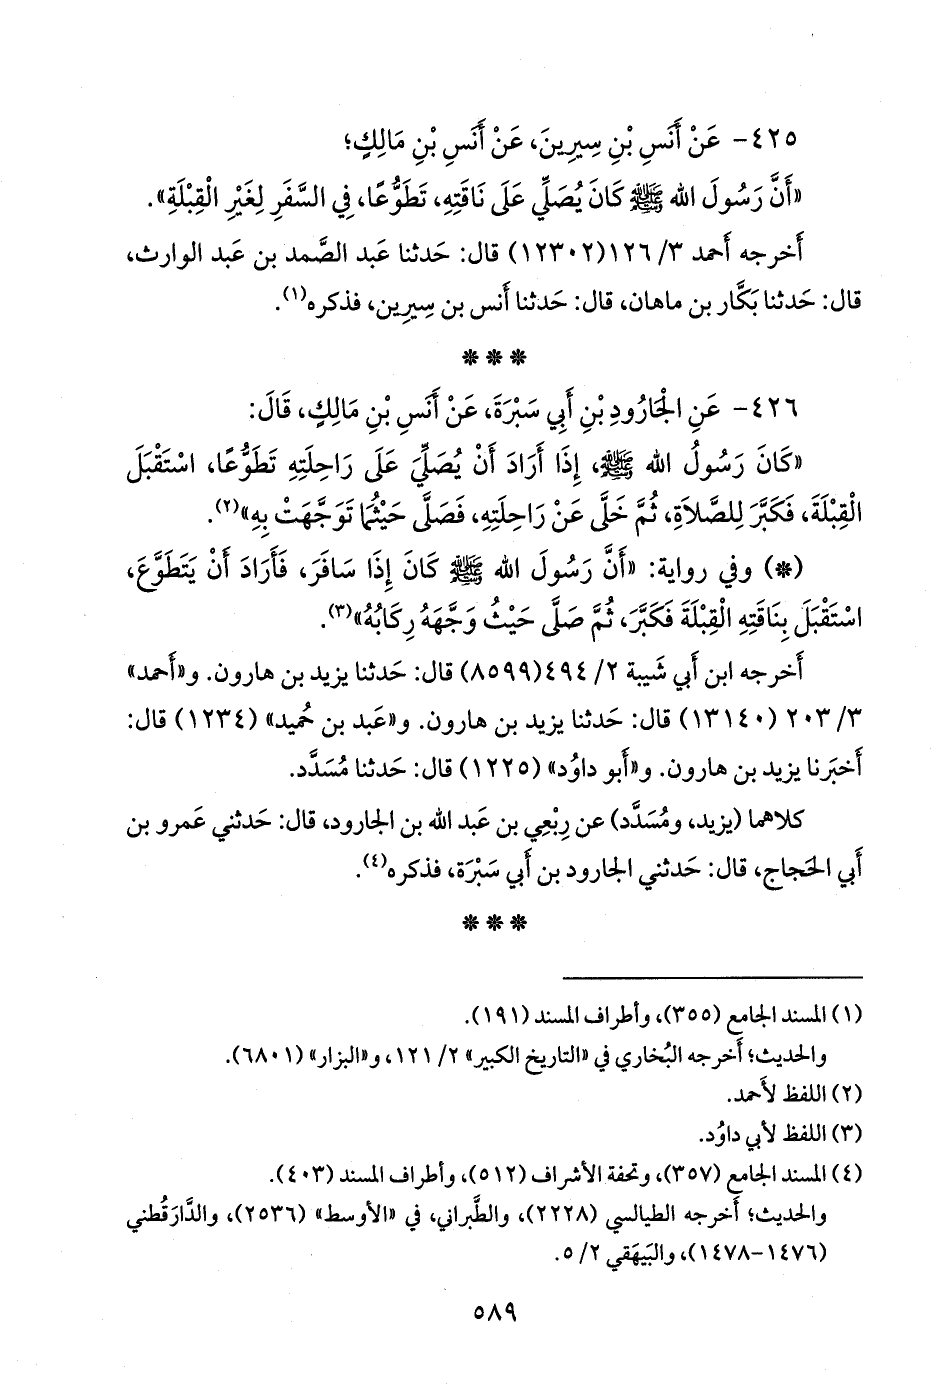 ٤٢٥- عَنْ أَنَسِ بْنِ سِيرِينَ، عَنْ أَنَسِ بْنِ مَالِكٍ؛
«أَنَّ رَسُولَ الله ﷺ كَانَ يُصَلِّي عَلَى نَاقَتِهِ، تَطَوُّعًا، فِي السَّفَرِ لِغَيْرِ الْقِبْلَةِ».
أَخرجه أَحمد ٣/ ١٢٦(١٢٣٠٢) قال: حَدثنا عَبد الصَّمد بن عَبد الوارث،
قال: حَدثنا بَكَّار بن ماهان، قال: حَدثنا أَنس بن سِيرِين، فذكره(١).
* * *
٤٢٦- عَنِ الْجَارُودِ بْنِ أَبِي سَبْرَةَ، عَنْ أَنَسِ بْنِ مَالِكٍ، قَالَ:
«كَانَ رَسُولُ الله ﷺ، إِذَا أَرَادَ أَنْ يُصَلِّيَ عَلَى رَاحِلَتِهِ تَطَوُّعًا، اسْتَقْبَلَ
الْقِبْلَةَ، فَكَبَّرَ لِلصَّلاَةِ، ثُمَّ خَلَّى عَنْ رَاحِلَتِهِ، فَصَلَّى حَيْثُمَا تَوَجَّهَتْ بِهِ»(٢).
(*) وفي رواية: «أَنَّ رَسُولَ الله ﷺ كَانَ إِذَا سَافَرَ، فَأَرَادَ أَنْ يَتَطَوَّعَ،
اسْتَقْبَلَ بِنَاقَتِهِ الْقِبْلَةَ فَكَبَّرَ، ثُمَّ صَلَّى حَيْثُ وَجَّهَهُ رِكَابُهُ»(٣).
أَخرجه ابن أَبي شَيبة ٢/ ٤٩٤(٨٥٩٩) قال: حَدثنا يزيد بن هارون. و«أَحمد»
٣/ ٢٠٣ (١٣١٤٠) قال: حَدثنا يزيد بن هارون. و«عَبد بن حُميد» (١٢٣٤) قال:
أَخبَرنا يزيد بن هارون. و«أَبو داوُد» (١٢٢٥) قال: حَدثنا مُسَدَّد.
كلاهما (يزيد، ومُسَدَّد) عن رِبْعِي بن عَبد الله بن الجارود، قال: حَدثني عَمرو بن
أَبي الحَجاج، قال: حَدثني الجارود بن أَبي سَبْرَة، فذكره(٤).
* * *
(١) المسند الجامع (٣٥٥)، وأطراف المسند (١٩١).
والحديث؛ أَخرجه البُخاري في «التاريخ الكبير» ٢/ ١٢١، و«البزار» (٦٨٠١).
(٢) اللفظ لأَحمد.
(٣) اللفظ لأبي داوُد.
(٤) المسند الجامع (٣٥٧)، وتحفة الأشراف (٥١٢)، وأطراف المسند (٤٠٣).
والحديث؛ أَخرجه الطيالسي (٢٢٢٨)، والطَّبراني، في «الأوسط» (٢٥٣٦)، والدَّارَقُطني
(١٤٧٦-١٤٧٨)، والبَيهَقي ٢/ ٥.
٥٨٩